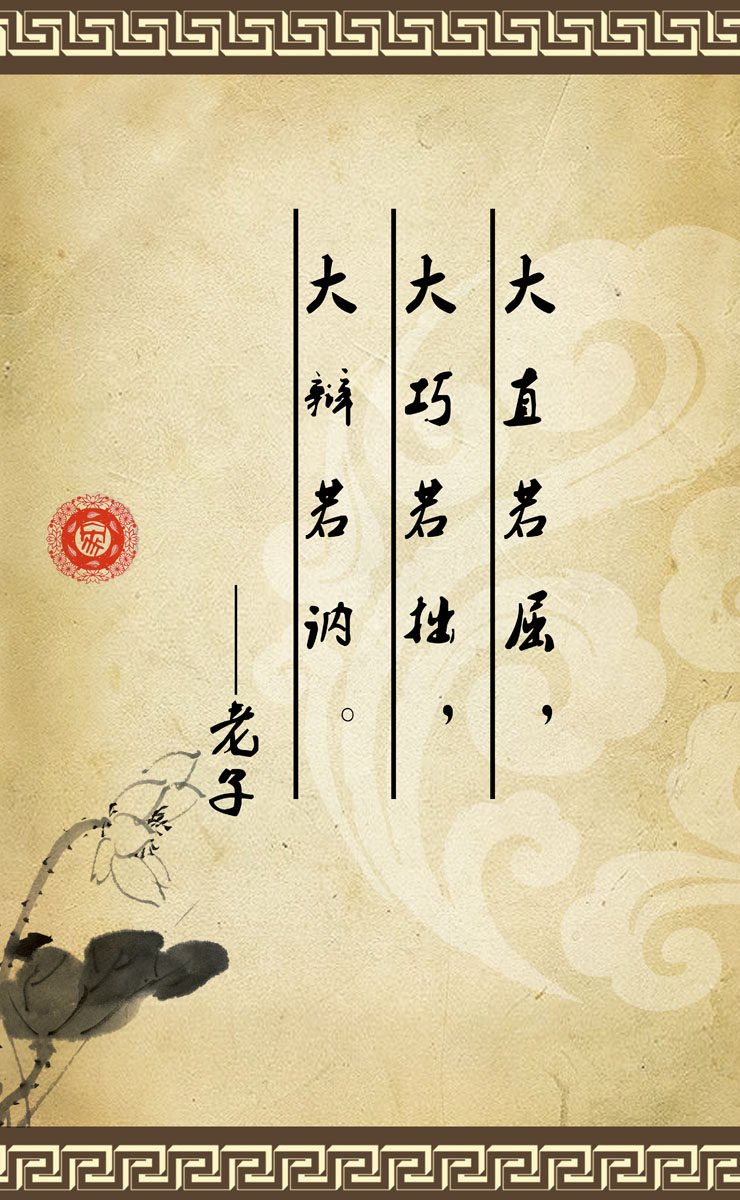 大直若屈，
大巧若拙，
大辩若讷。
——老子